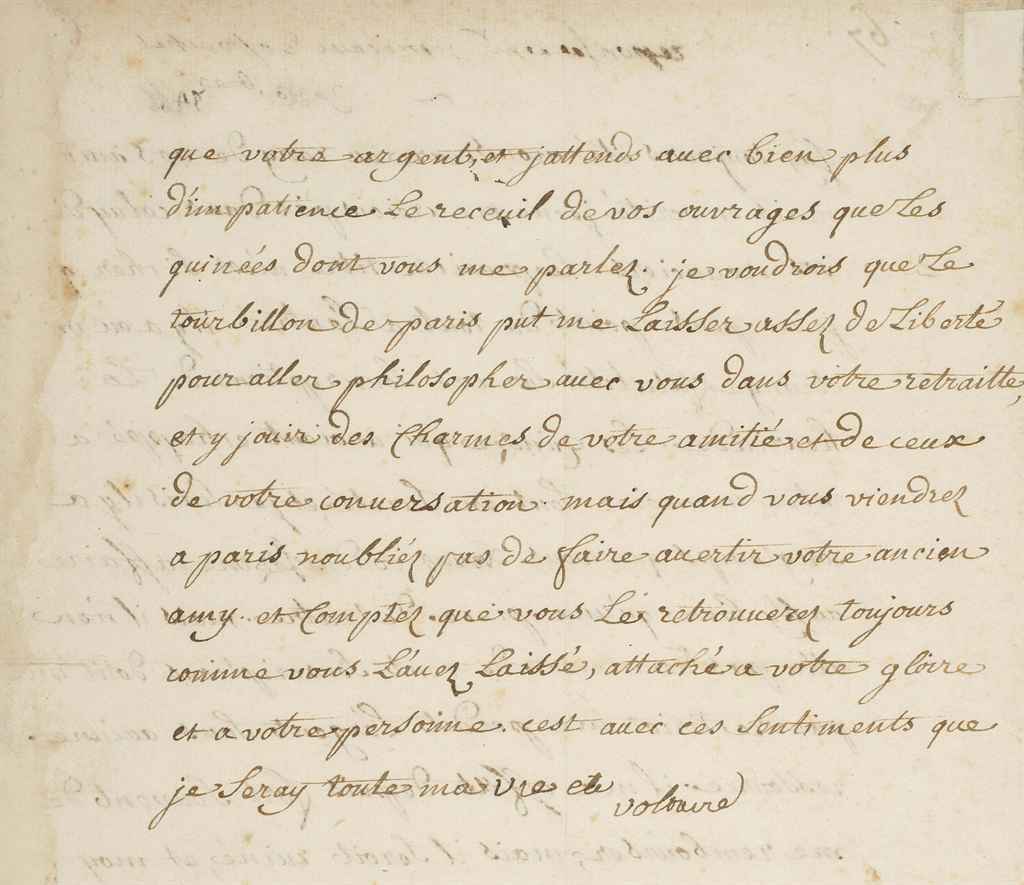 que votre argent, et jattends avec bien plus
d'impatience le receuil de vos ouvrages que les
guinées dont vous me parlez. je voudrois que le
tourbillon de paris put me laisser assez de liberté
pour aller philosopher avec vous dans votre retraitte,
et y jouir des charmes de votre amitié et de ceux
de votre conversation. mais quand vous viendrez
a paris noubliez pas de faire avertir votre ancien
amy. et comptez que vous le retrouverez toujours
comme vous l'avez laissé, attaché a votre gloire
et a votre personne. cest avec ces sentiments que
je seray toute ma vie etc
voltaire